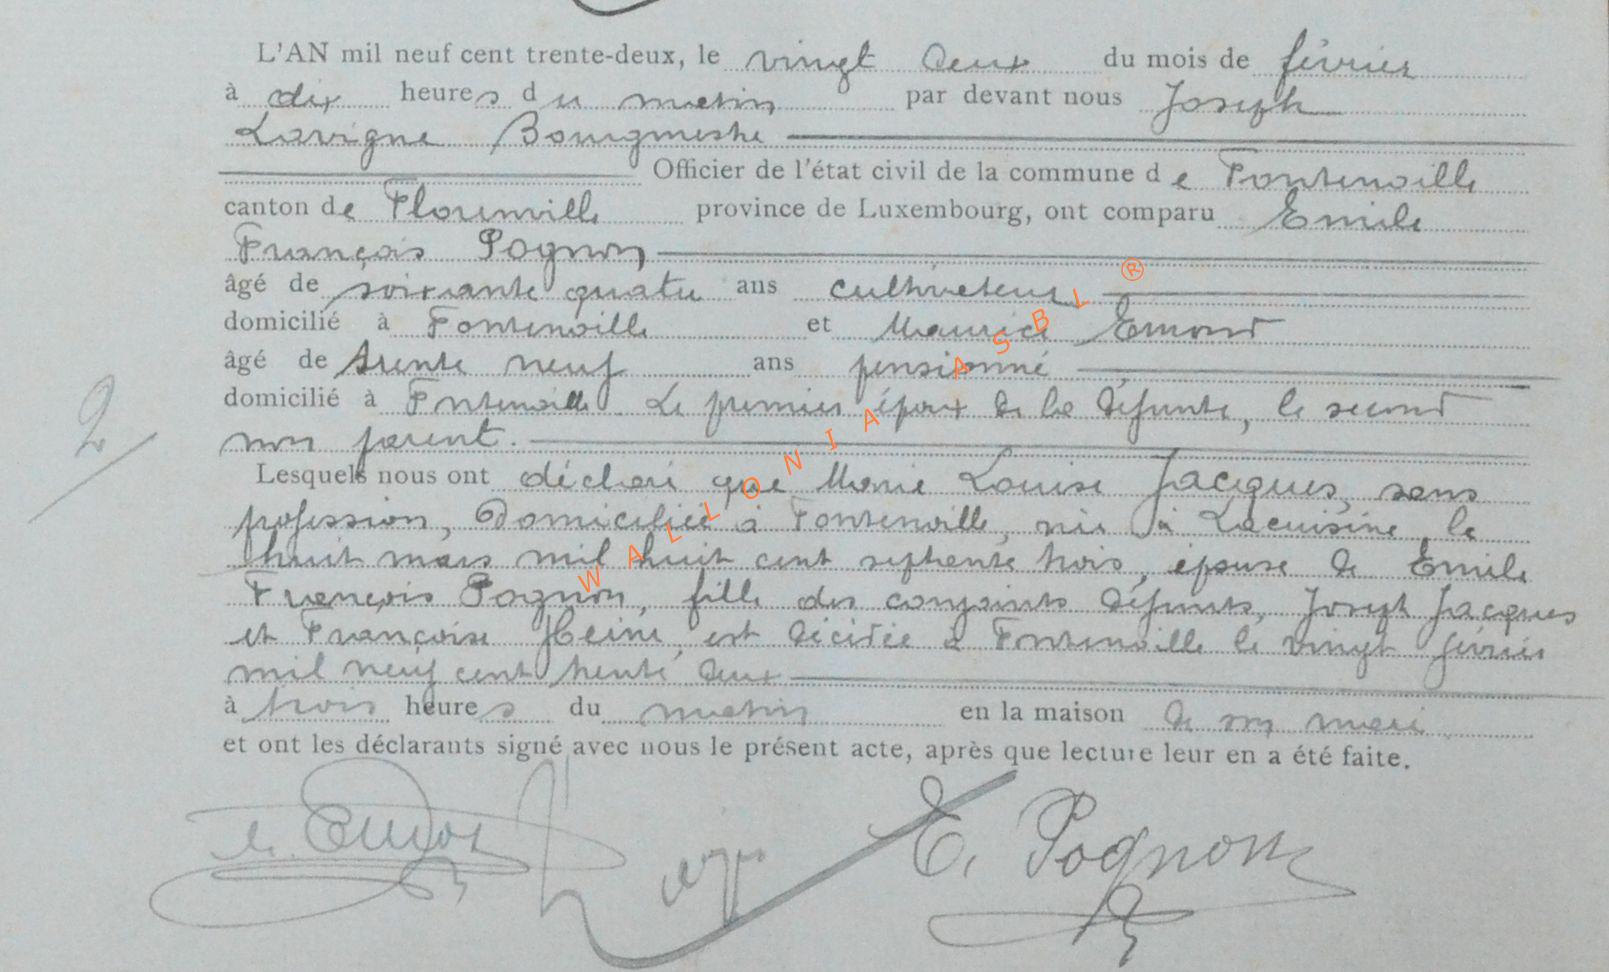 L'AN mil neuf cent trente-deux, le vingt deux du mois de février
à dix heures du matin par devant nous Joseph
Lavigne Bourgmestre
Officier de l'état civil de la commune de Fontenoille
canton de Florenville province de Luxembourg, ont comparu Emile
François Pognon
âgé de soixante quatre ans cultivateur
domicilié à Fontenoille et Maurice Emond
âgé de trente neuf ans pensionné
domicilié à Fontenoille Le premier époux de la défunte, le second
non parent.
Lesquels nous ont déclaré que Marie Louise Jacques, sans
profession, domiciliée à Fontenoille, née à Lacuisine le
huit mars mil huit cent septante trois, épouse de Emile
François Pognon, fille des conjoints défunts, Joseph Jacques
et Françoise Heine, est décédée à Fontenoille le vingt février
mil neuf cent trente deux
à trois heures du matin en la maison de son mari
et ont les déclarants signé avec nous le présent acte, après que lecture leur en a été faite.
2
WALLONIA ASBL ®
E. Pognon